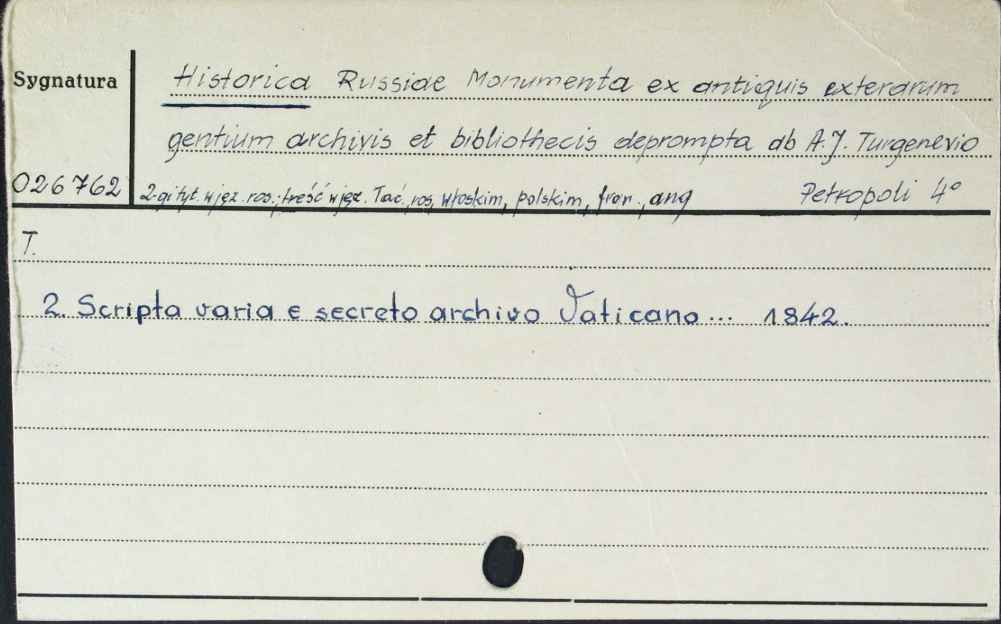 Sygnatura
Historica Russiae Monumenta ex antiquis exterarum
gentium archivis et bibliothecis deprompta ab A.J. Turgenevio
026762
2-gi tyt. w jęz. ros.; treść w jęz. łac., ros, włoskim, polskim, fran., ang
Petropoli 4°
T.
2. Scripta varia e secreto archivo Vaticano... 1842.